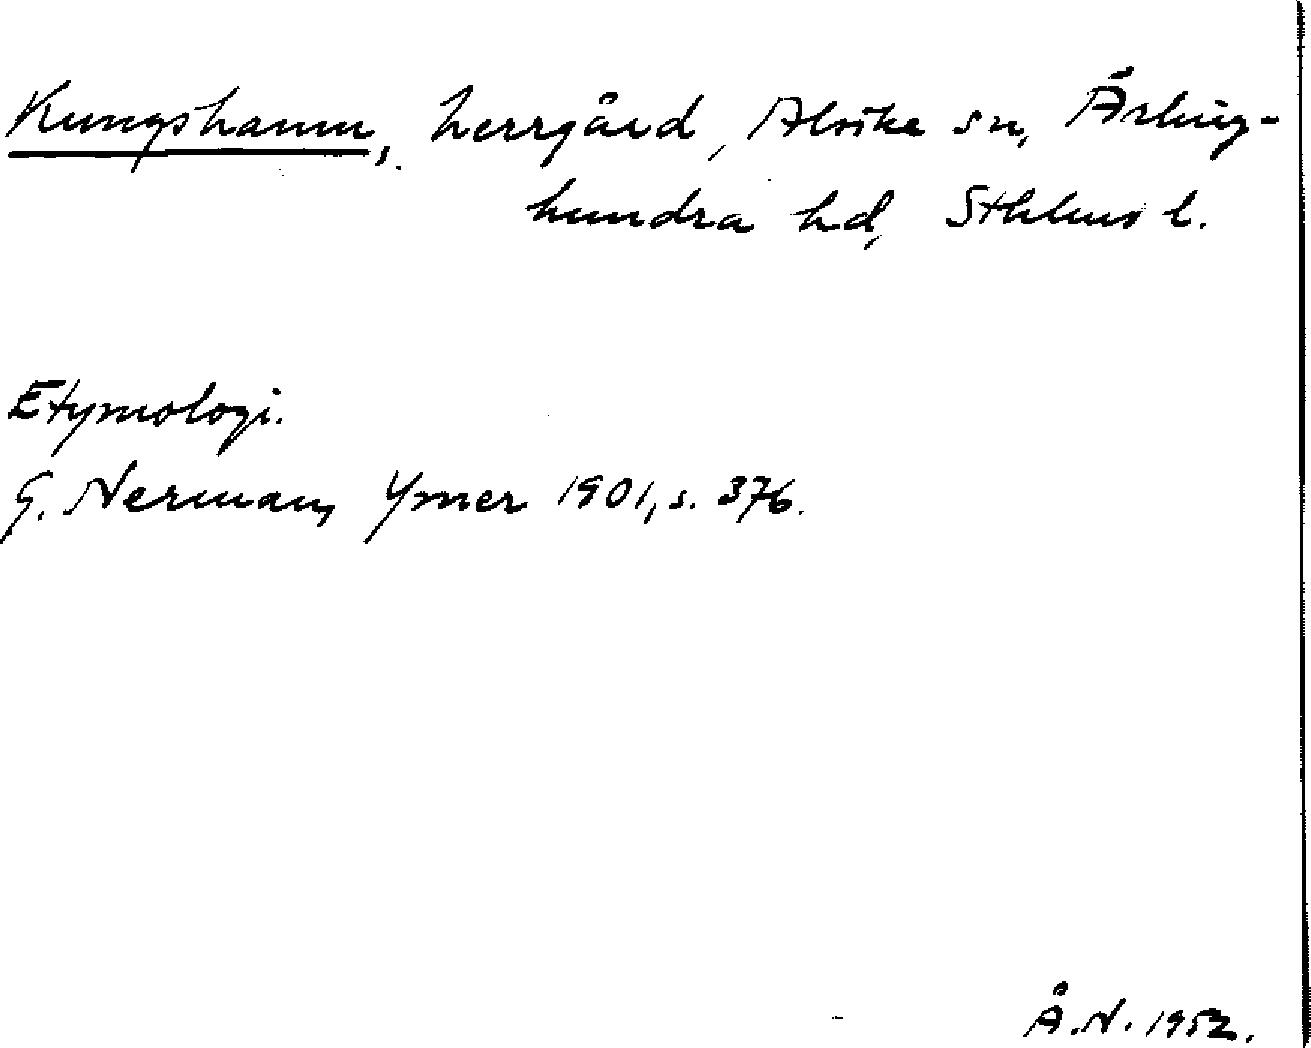 Kungshamn, herrgård, Alsike sn, Ärling-
hundra hd, Sthlms l.
Etymologi.
G. Nerman, Ymer 1901, s. 376.
Å.N. 1952.